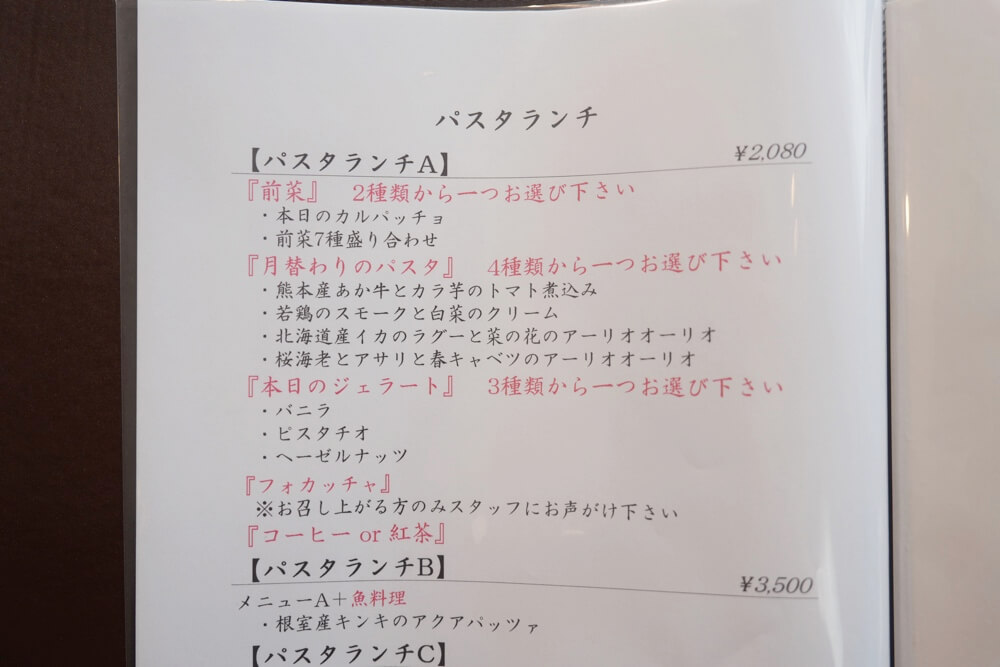 パスタランチ
【パスタランチA】 ¥2,080
『前菜』 2種類から一つお選び下さい
・本日のカルパッチョ
・前菜7種盛り合わせ
『月替わりのパスタ』 4種類から一つお選び下さい
・熊本産あか牛とカラ芋のトマト煮込み
・若鶏のスモークと白菜のクリーム
・北海道産イカのラグーと菜の花のアーリオオーリオ
・桜海老とアサリと春キャベツのアーリオオーリオ
『本日のジェラート』 3種類から一つお選び下さい
・バニラ
・ピスタチオ
・ヘーゼルナッツ
『フォカッチャ』
※お召し上がる方のみスタッフにお声がけ下さい
『コーヒー or 紅茶』
【パスタランチB】 ¥3,500
メニューA＋魚料理
・根室産キンキのアクアパッツァ
【パスタランチC】